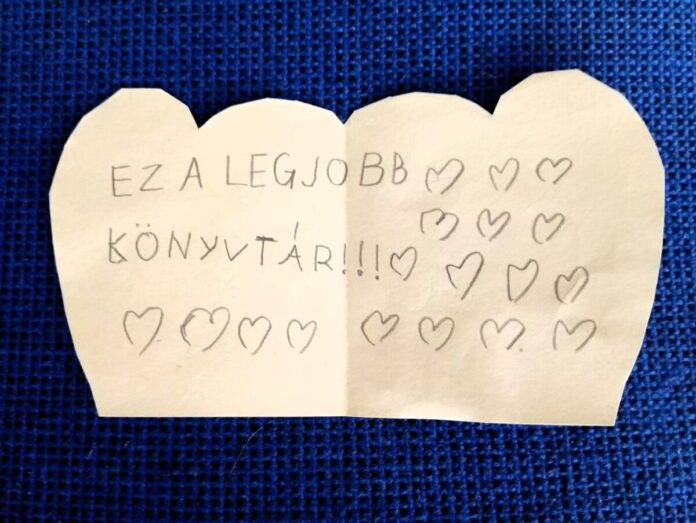 EZ A LEGJOBB
KÖNYVTÁR!!!